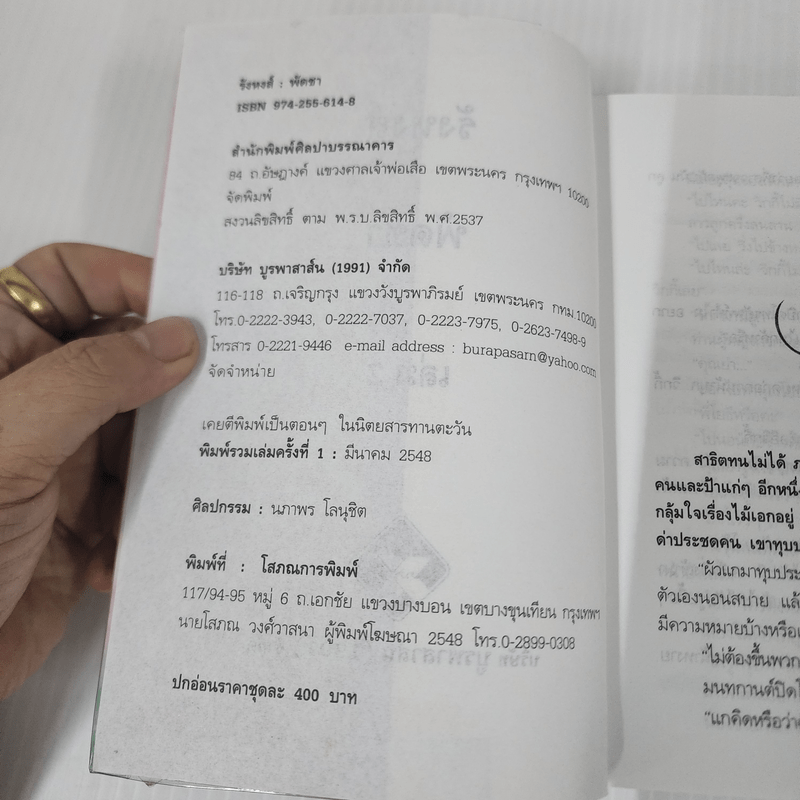 รังหงส์ : พัดชา
ISBN 974-255-614-8
สำนักพิมพ์ศิลปาบรรณาคาร
84 ถ.อัษฎางค์ แขวงศาลเจ้าพ่อเสือ เขตพระนคร กรุงเทพฯ 10200
จัดพิมพ์
สงวนลิขสิทธิ์ ตาม พ.ร.บ.ลิขสิทธิ์ พ.ศ.2537
บริษัท บูรพาสาส์น (1991) จำกัด
116-118 ถ.เจริญกรุง แขวงวังบูรพาภิรมย์ เขตพระนคร กทม.10200
โทร.0-2222-3943, 0-2222-7037, 0-2223-7975, 0-2623-7498-9
โทรสาร 0-2221-9446 e-mail address : burapasarn@yahoo.com
จัดจำหน่าย
เคยตีพิมพ์เป็นตอนๆ ในนิตยสารทานตะวัน
พิมพ์รวมเล่มครั้งที่ 1 : มีนาคม 2548
ศิลปกรรม : นภาพร โลนุชิต
พิมพ์ที่ : โสภณการพิมพ์
117/94-95 หมู่ 6 ถ.เอกชัย แขวงบางบอน เขตบางขุนเทียน กรุงเทพฯ
นายโสภณ วงศ์วาสนา ผู้พิมพ์โฆษณา 2548 โทร.0-2899-0308
ปกอ่อนราคาชุดละ 400 บาท
สาธิตทนไม่ได้
คนและป้าแก่ๆ อีกหนึ่ง
กลุ้มใจเรื่องไม้เอกอยู่
ด่าประชดคน เขาทุบ
"ผัวแกมาทุบประ
ตัวเองนอนสบาย แล้
มีความหมายบ้างหรือ
"ไม่ต้องขึ้นพวก
มนทกานต์ปิดโ
"แกคิดหรือว่า